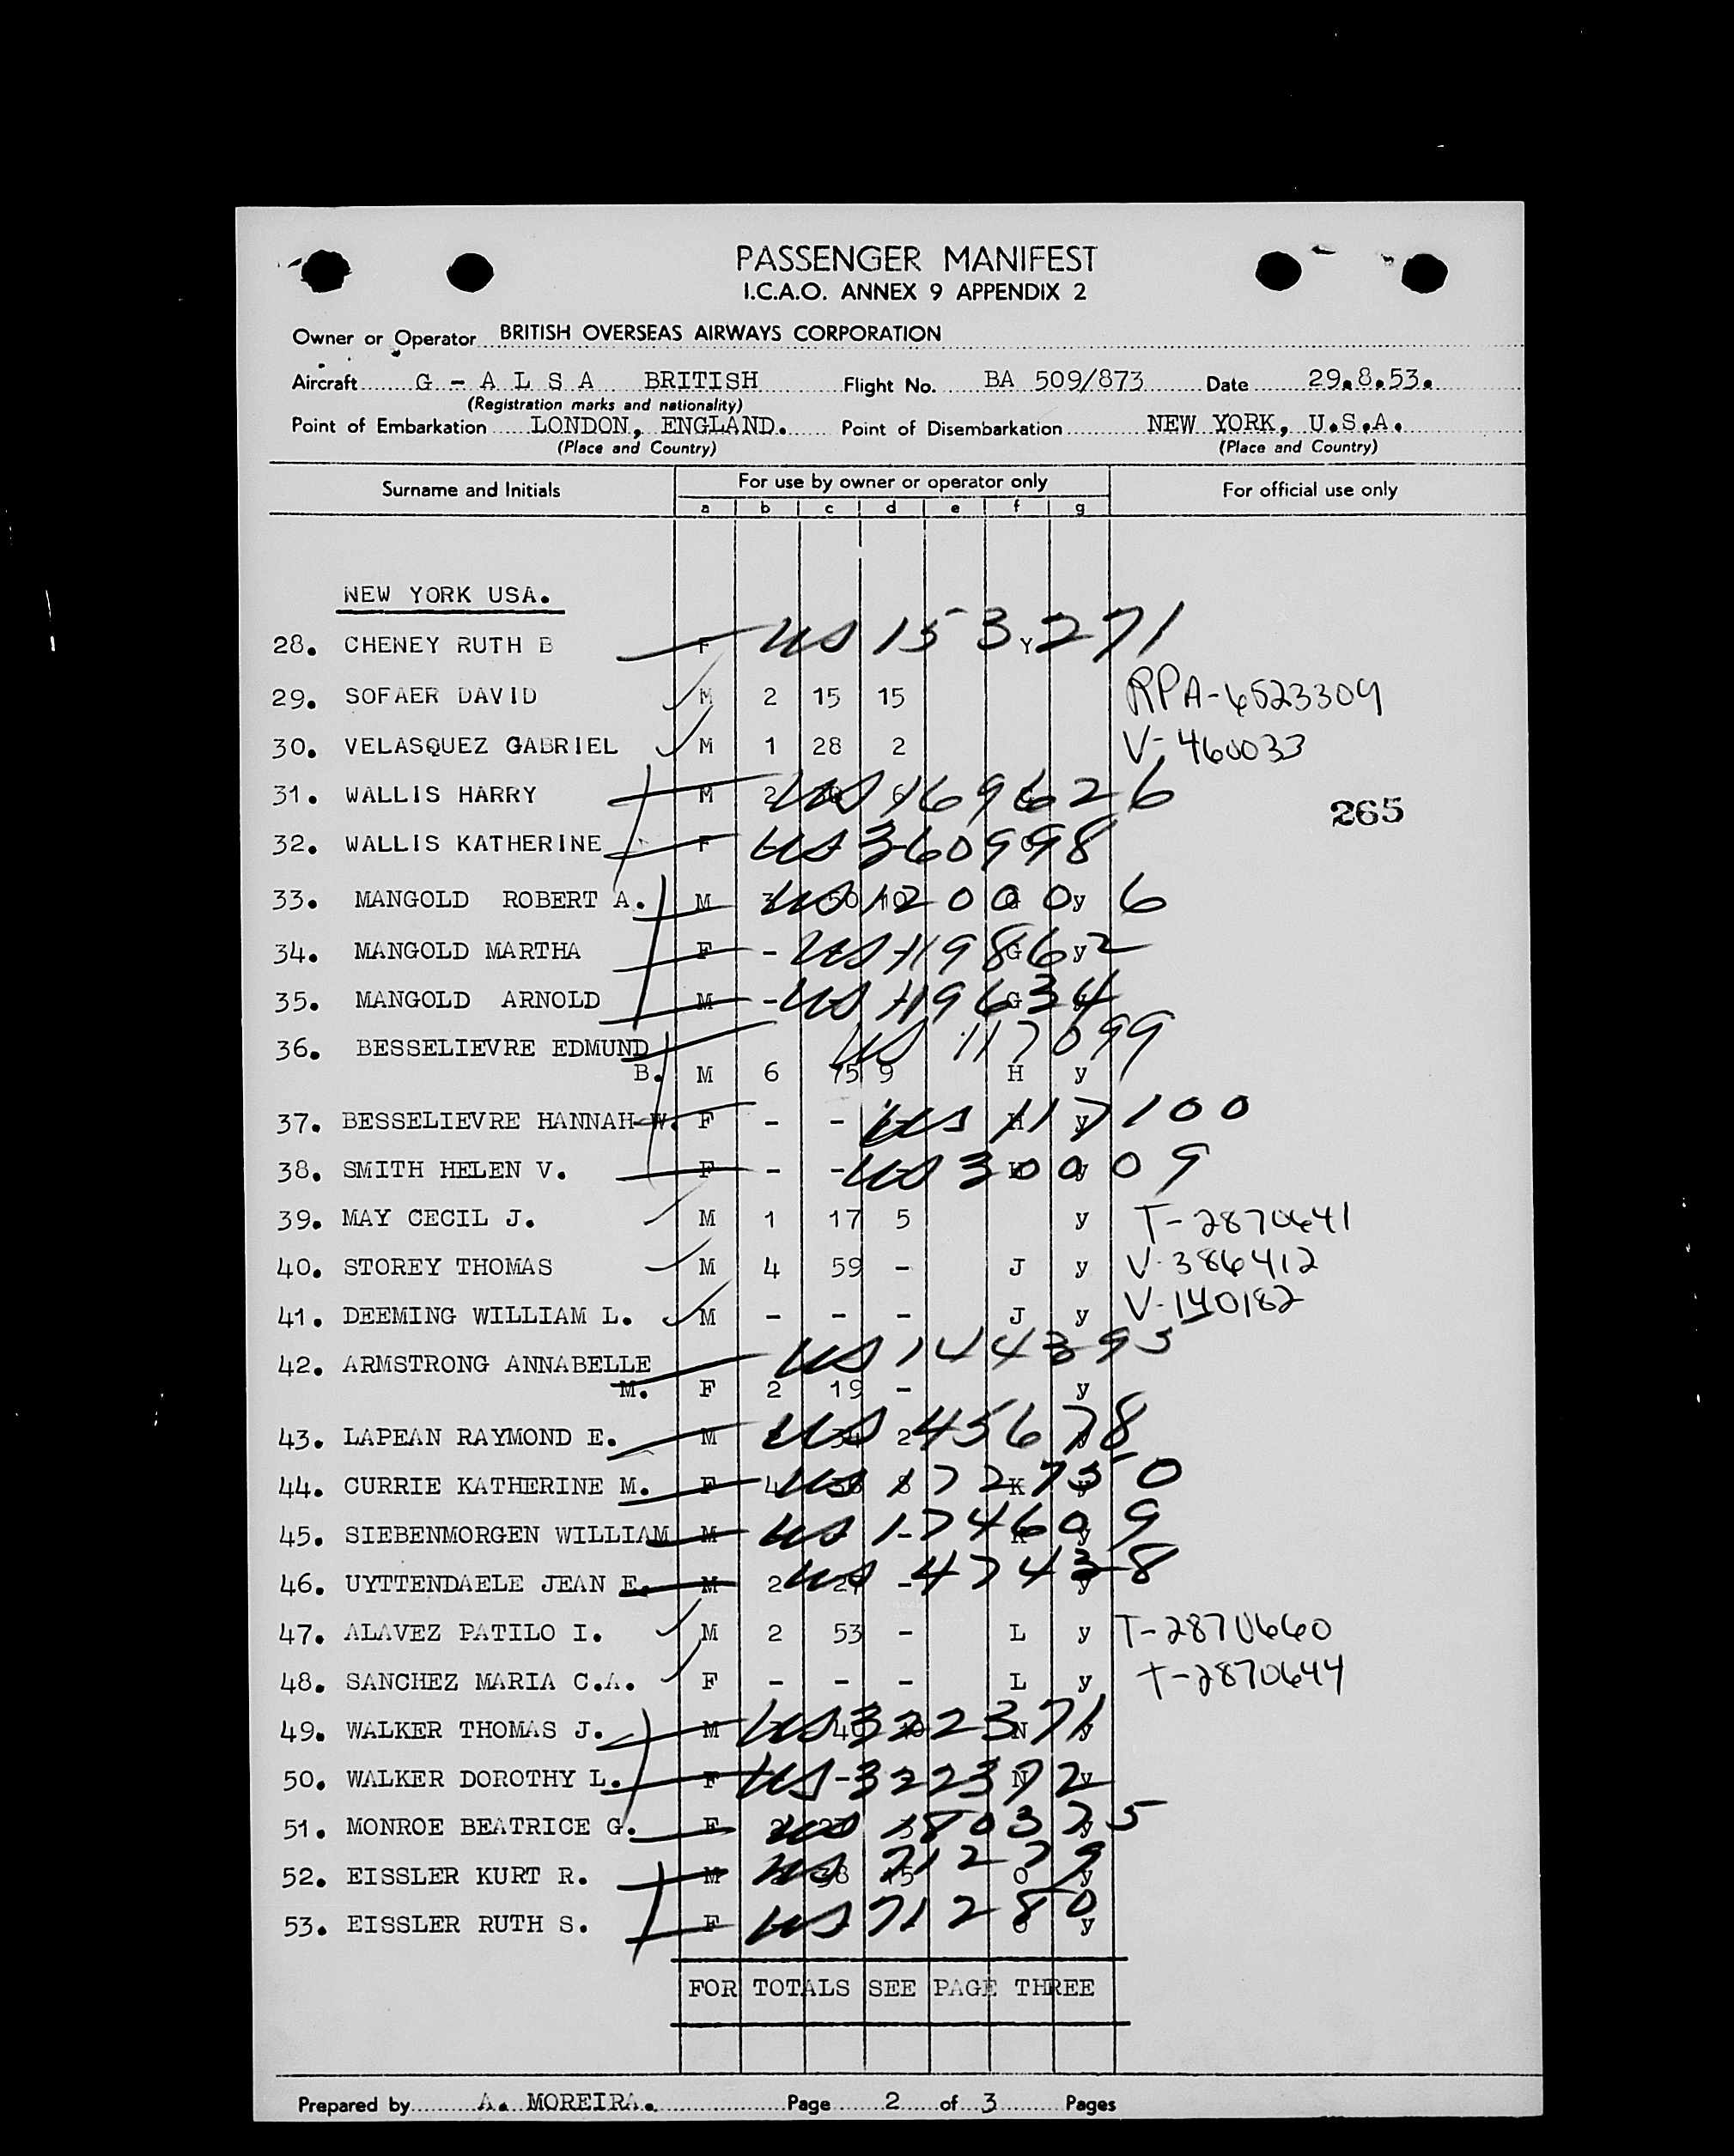 PASSENGER MANIFEST
I.C.A.O. ANNEX 9 APPENDIX 2
Owner or Operator BRITISH OVERSEAS AIRWAYS CORPORATION
Aircraft G - A L S A BRITISH Flight No. BA 509/873 Date 29.8.53.
(Registration marks and nationality)
Point of Embarkation LONDON, ENGLAND. Point of Disembarkation NEW YORK, U.S.A.
(Place and Country) (Place and Country)
Surname and Initials For use by owner or operator only For official use only
a b c d e f g
NEW YORK USA.
28. CHENEY RUTH B F US 153271 Y
29. SOFAER DAVID M 2 15 15 RPA-6523309
30. VELASQUEZ GABRIEL M 1 28 2 V-460033
31. WALLIS HARRY M 2 US 169626
265
32. WALLIS KATHERINE F US 360998
33. MANGOLD ROBERT A. M US 120006 y
34. MANGOLD MARTHA F - US 119862 G y
35. MANGOLD ARNOLD M - US 119634 G
36. BESSELIEVRE EDMUND US 117099
B. M 6 75 9 H y
37. BESSELIEVRE HANNAH W. F - - US 117100 H y
38. SMITH HELEN V. F - - US 30009 H y
39. MAY CECIL J. M 1 17 5 y T-2870641
40. STOREY THOMAS M 4 59 - J y V-386412
41. DEEMING WILLIAM L. M - - - J y V-140182
42. ARMSTRONG ANNABELLE US 144395
M. F 2 19 - y
43. LAPEAN RAYMOND E. M US 45678 2
44. CURRIE KATHERINE M. F 4 US 172750 8 K y
45. SIEBENMORGEN WILLIAM M US 174609 - K y
46. UYTTENDAELE JEAN E. M 2 US 47438 - y
47. ALAVEZ PATILO I. M 2 53 - L y T-2870660
48. SANCHEZ MARIA C.A. F - - - L y T-2870644
49. WALKER THOMAS J. M US 322371 N y
50. WALKER DOROTHY L. F US 322372 N y
51. MONROE BEATRICE G. F US 180375 y
52. EISSLER KURT R. M US 71279 38 15 O y
53. EISSLER RUTH S. F US 71280 O y
FOR TOTALS SEE PAGE THREE
Prepared by A. MOREIRA. Page 2 of 3 Pages